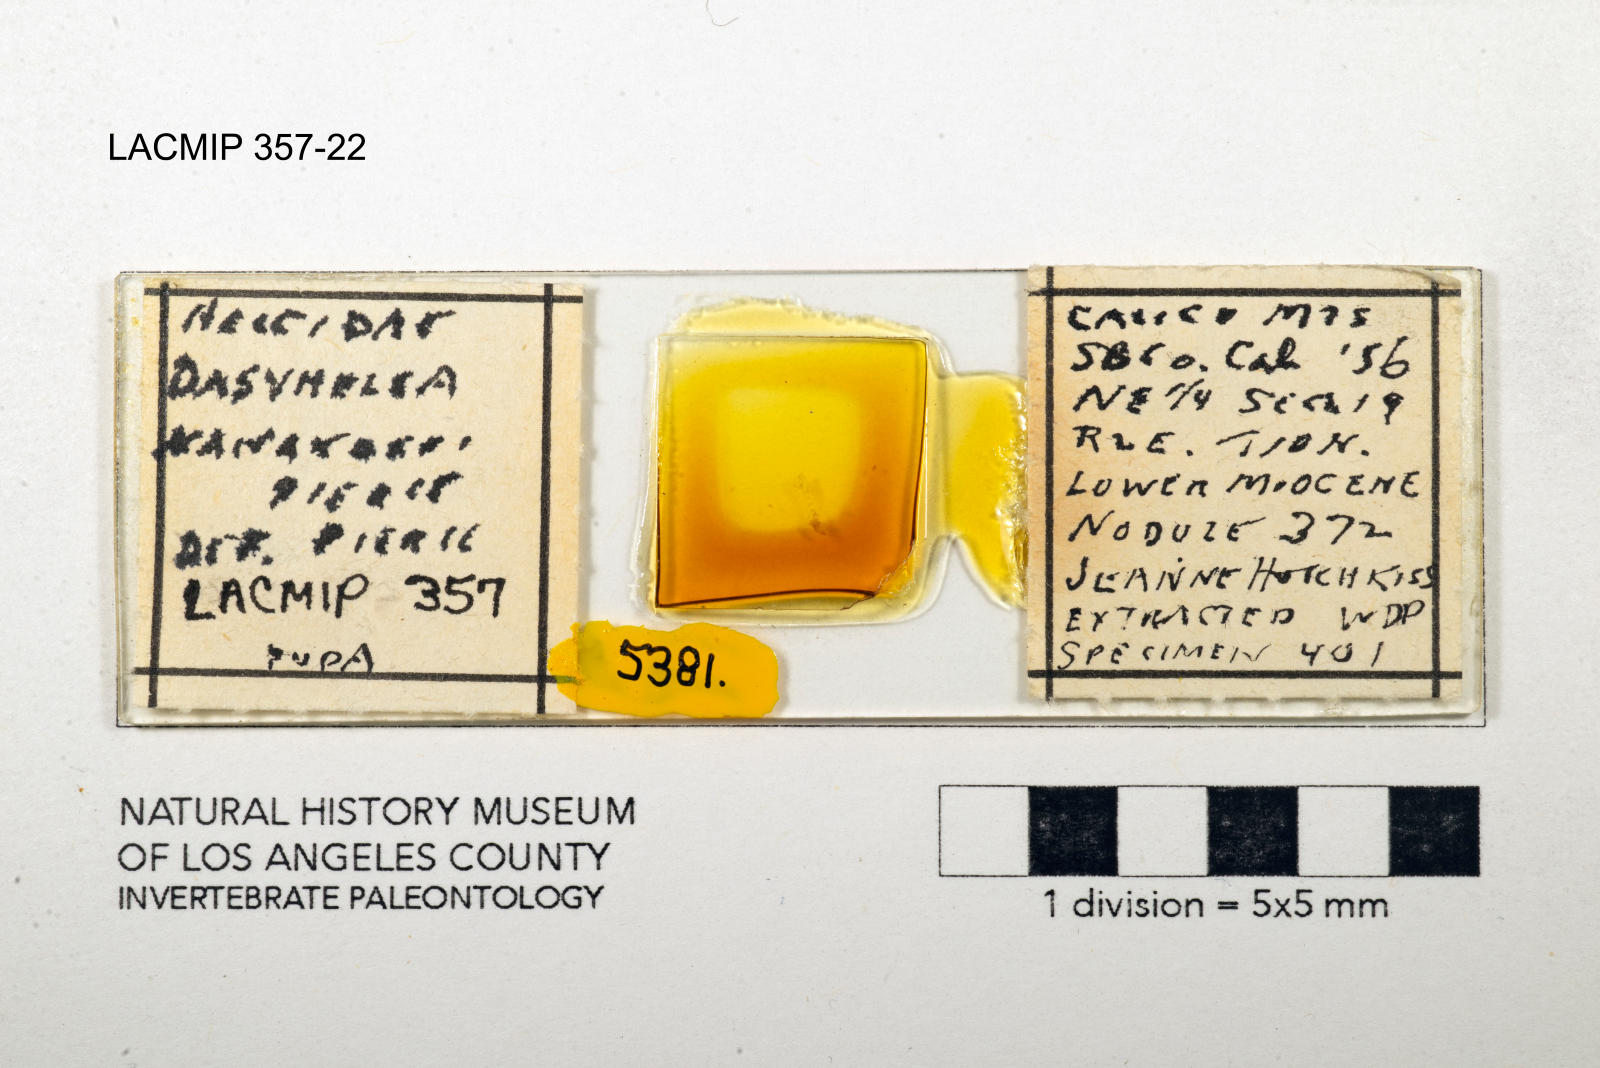 LACMIP 357-22
HELEIDAE
DASYHELEA
KANAKOFFI
PIERCE
DET. PIERCE
LACMIP 357
PUPA
5381.
CALICO MTS
SBCO. Cal '56
NE 1/4 Sec 19
R2E. T10N.
LOWER MIOCENE
NODULE 372
JEANNE HOTCHKISS
EXTRACTED WDP
SPECIMEN 401
NATURAL HISTORY MUSEUM
OF LOS ANGELES COUNTY
INVERTEBRATE PALEONTOLOGY
1 division = 5x5 mm